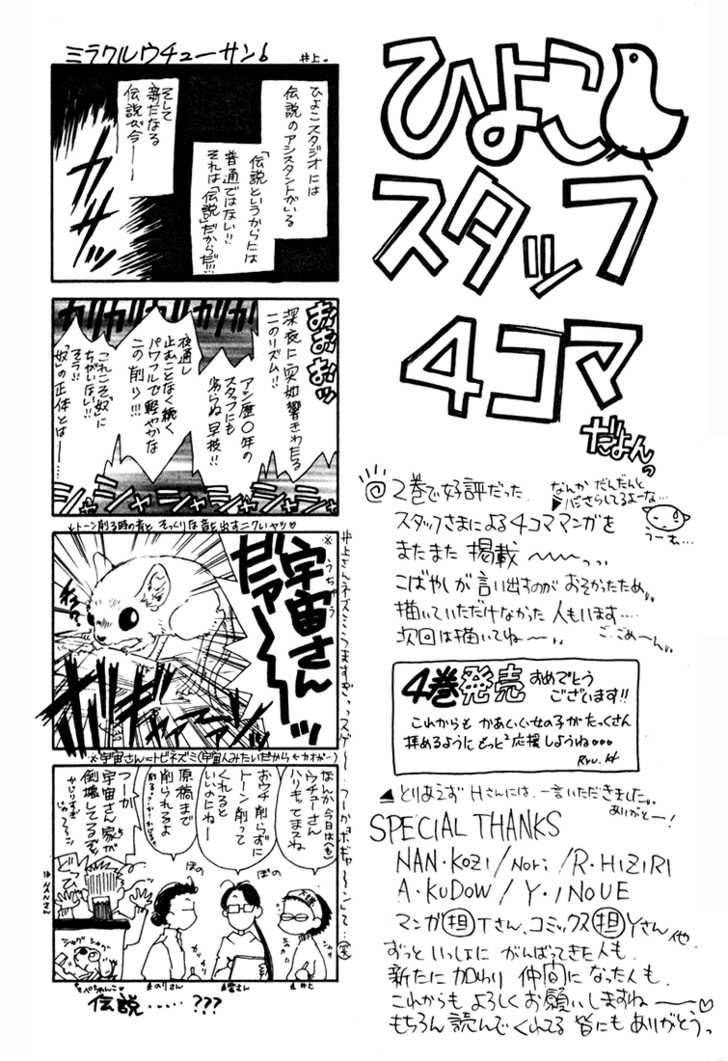 ひよこ
スタッフ
4コマ
だよんっ
2巻で好評だった
スタッフさまによる4コママンガを
またまた掲載〜〜っっ
なんかだんだんと
バラさらしてるよーな…
つーね…
こばやしが言い出すのがおそかったため、
描いていただけなかった人もいます…
次回は描いてねー
ごごめーん
4巻発売おめでとう
ございます!!
これからもかあいい女の子がたっくさん
拝めるようにもっと²応援しようね。。。
Ryu.H
▲とりあえずHさんには、一言いただきました。
ありがとー!
SPECIAL THANKS
NAN・KOZI/NORI/R・HIZIRI
A・KUDOW/Y・INOUE
マンガ担Tさん、コミックス担Yさん他
ずっといっしょにがんばってきた人も、
新たに加わり仲間になった人も、
これからもよろしくお願いしますね〜♡
もちろん読んでくれてる皆にもありがとうっ
ミラクルウチューサン♭
井上。
ひよこスタジオには
伝説のアシスタントがいる
「伝説というからには
普通ではない!!
それは「伝説」だからだ!!!
そして
新たなる
伝説が今――
カッ
おおおおっ
深夜に突如響きわたる
このリズム!!
カリカリカリカリカリ
アシ歴〇年の
スタッフにも
劣らぬ早技!!
夜通し
止むことなく続く
パワフルで軽やかな
この削り!!!
これこそ“奴”に
ちがいない!!
そう!!
“奴”の正体とは――…
シャシャシャシャシャ
トーン削る時の音とそっくりな音を出すニクいヤツ♡
※うちゅう
宇宙さん
ゼァァ〜〜〜ッ
井上さんネズミうつますぎっっスゲ〜つーかボギャ〜ごて…
※宇宙さん=トビネズミ(宇宙人みたいだからヤカオガー)
なんか今日は(も)
ウチューさん
ハリキってますね
おウチ削らずに
トーン削って
くれると
いいのにねー
原稿まで
削られるよ
つーか
宇宙さん家が
倒壊してるぞ
やりすぎじゃ〜
ほの
ぼの
シャグシャグ
↑ぺちゃんこ
↑のりさん
↑聖さん
↑井上
伝説……???